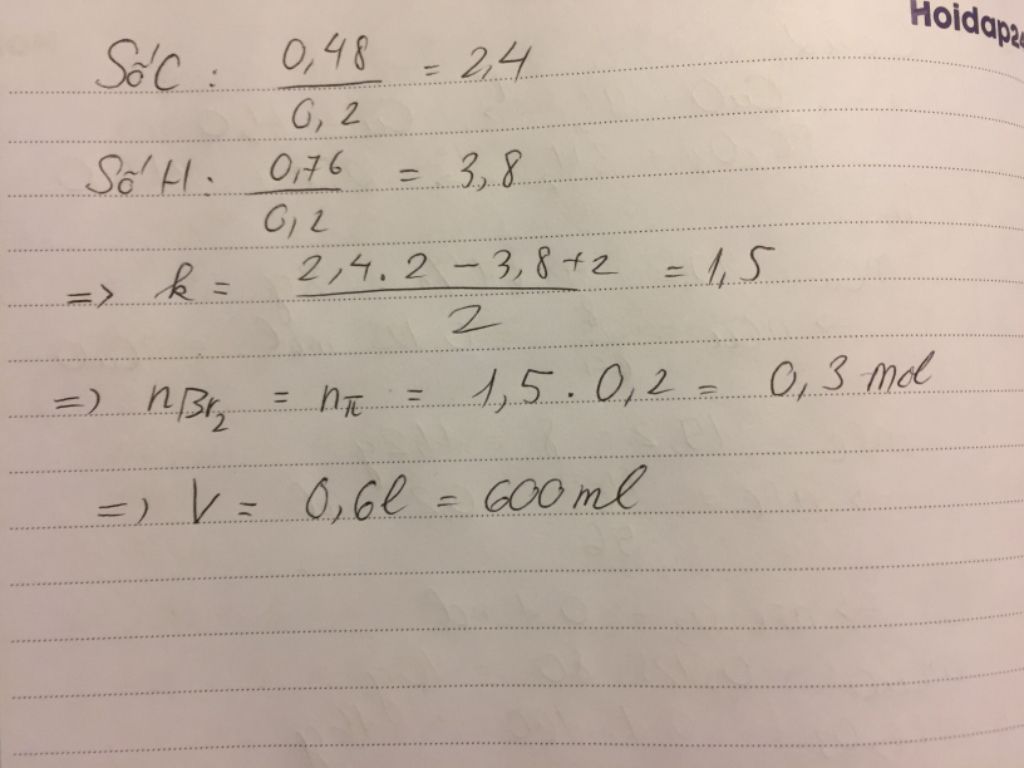 Hoidap24
Số C : 0,48 / 0,2 = 2,4
Số H : 0,76 / 0,2 = 3,8
=> k = 2,4 . 2 - 3,8 + 2 / 2 = 1,5
=> nBr2 = nπ = 1,5 . 0,2 = 0,3 mol
=> V = 0,6l = 600 ml